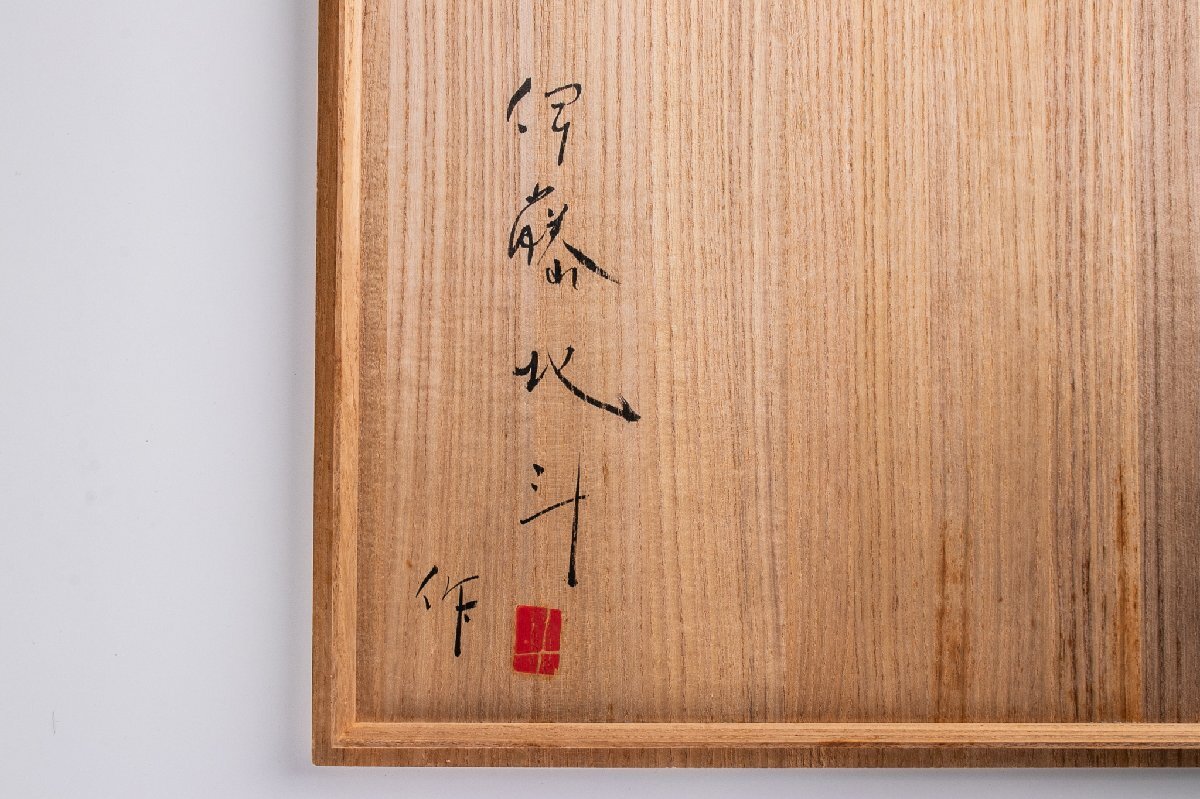 伊藤北斗
作